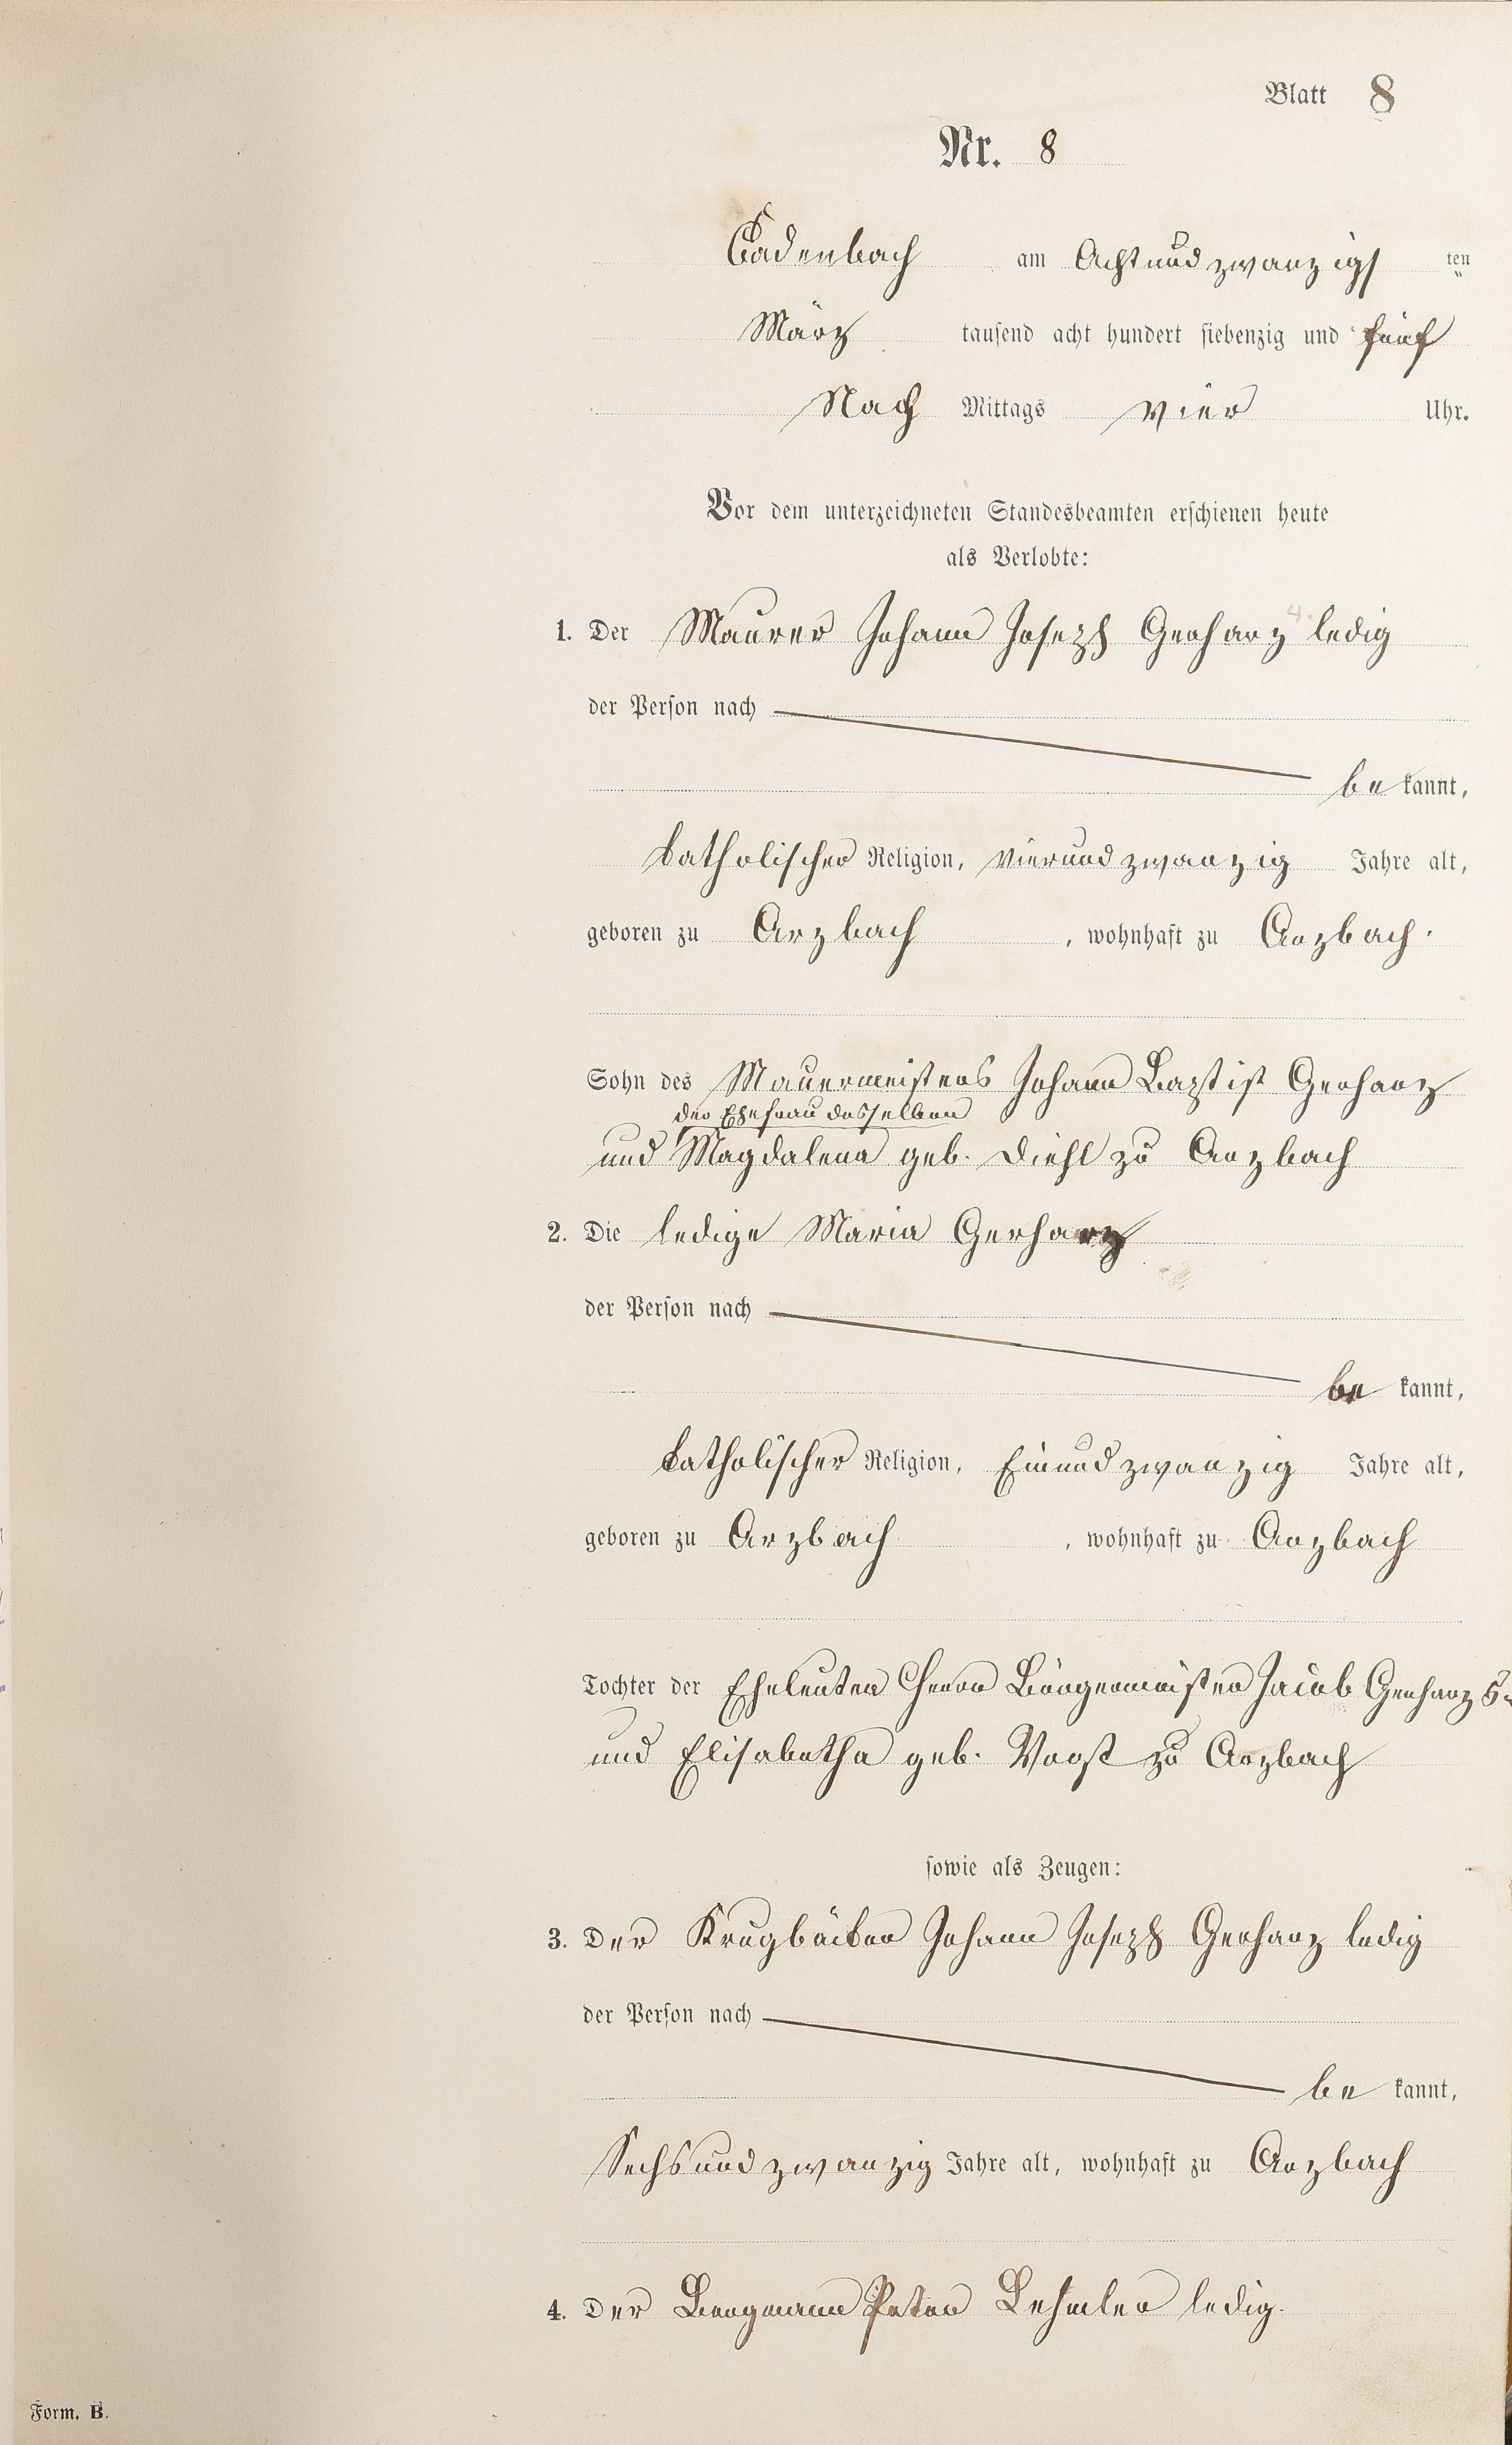 Blatt 8
Nr. 8
Cadenbach am Achtundzwanzigs ten
März tausend acht hundert siebenzig und fünf
Nach Mittags vier Uhr.
Vor dem unterzeichneten Standesbeamten erschienen heute
als Verlobte:
1. Der Maurer Johann Joseph Gerharz ledig
der Person nach
be kannt,
katholischer Religion, vierundzwanzig Jahre alt,
geboren zu Arzbach, wohnhaft zu Arzbach.
Sohn des Mauermeisters Johann Baptist Gerharz
der Ehefrau desselben
und Magdalena geb. Diehl zu Arzbach
2. Die ledige Maria Gerharz
der Person nach
be kannt,
katholischer Religion, Einundzwanzig Jahre alt,
geboren zu Arzbach, wohnhaft zu Arzbach
Tochter der Eheleuten Herrn Bürgermeister Jacob Gerharz
und Elisabetha geb. Vogst zu Arzbach
sowie als Zeugen:
3. Der Krugbäcker Johann Joseph Gerharz ledig
der Person nach
be kannt,
Sechsundzwanzig Jahre alt, wohnhaft zu Arzbach
4. Der Bergmann Peter Lehmler ledig.
Form. B.